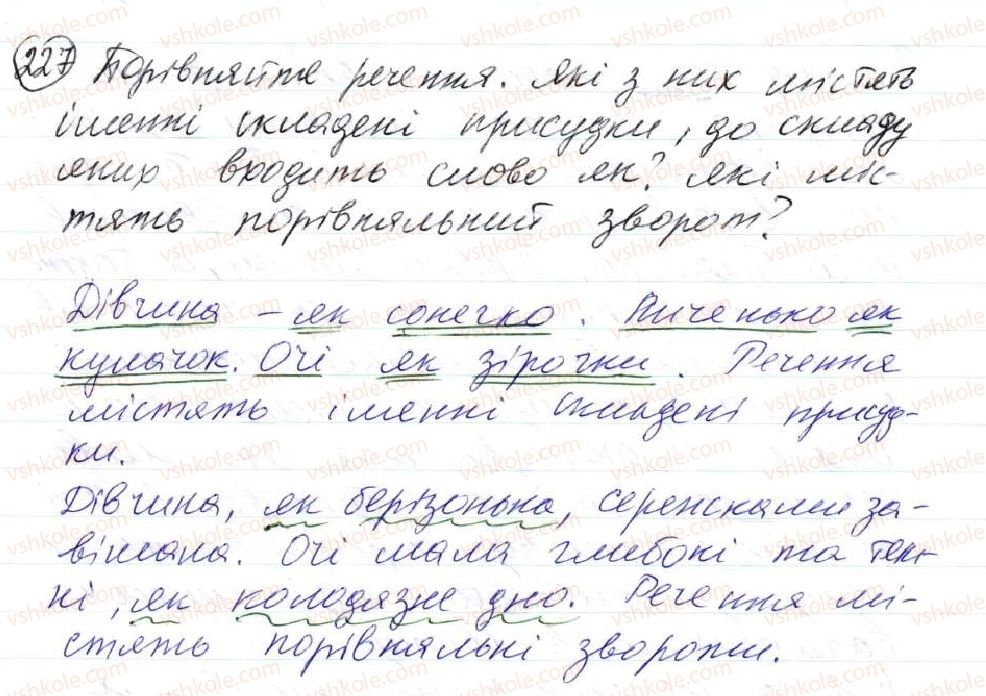 227 Порівняйте речення. Які з них містять
іменні складені присудки, до складу
яких входить слово як? Які міс-
тять порівняльний зворот?
Дівчина – як сонечко. Личенько як
кулачок. Очі як зірочки. Речення
містять іменні складені присуд-
ки.
Дівчина, як берізонька, сережками за-
вішана. Очі мала глибокі та тем-
ні, як колодязне дно. Речення мі-
стять порівняльні звороти.